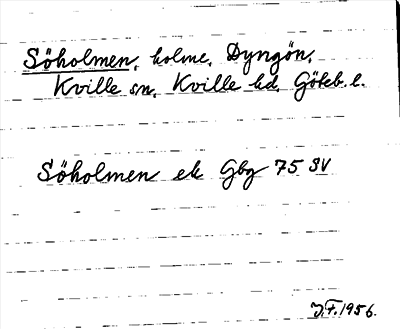 Söholmen, holme, Dyngön,
Kville sn, Kville hd, Göteb. l.
Söholmen ek Gbg 75 SV
J.F. 1956.